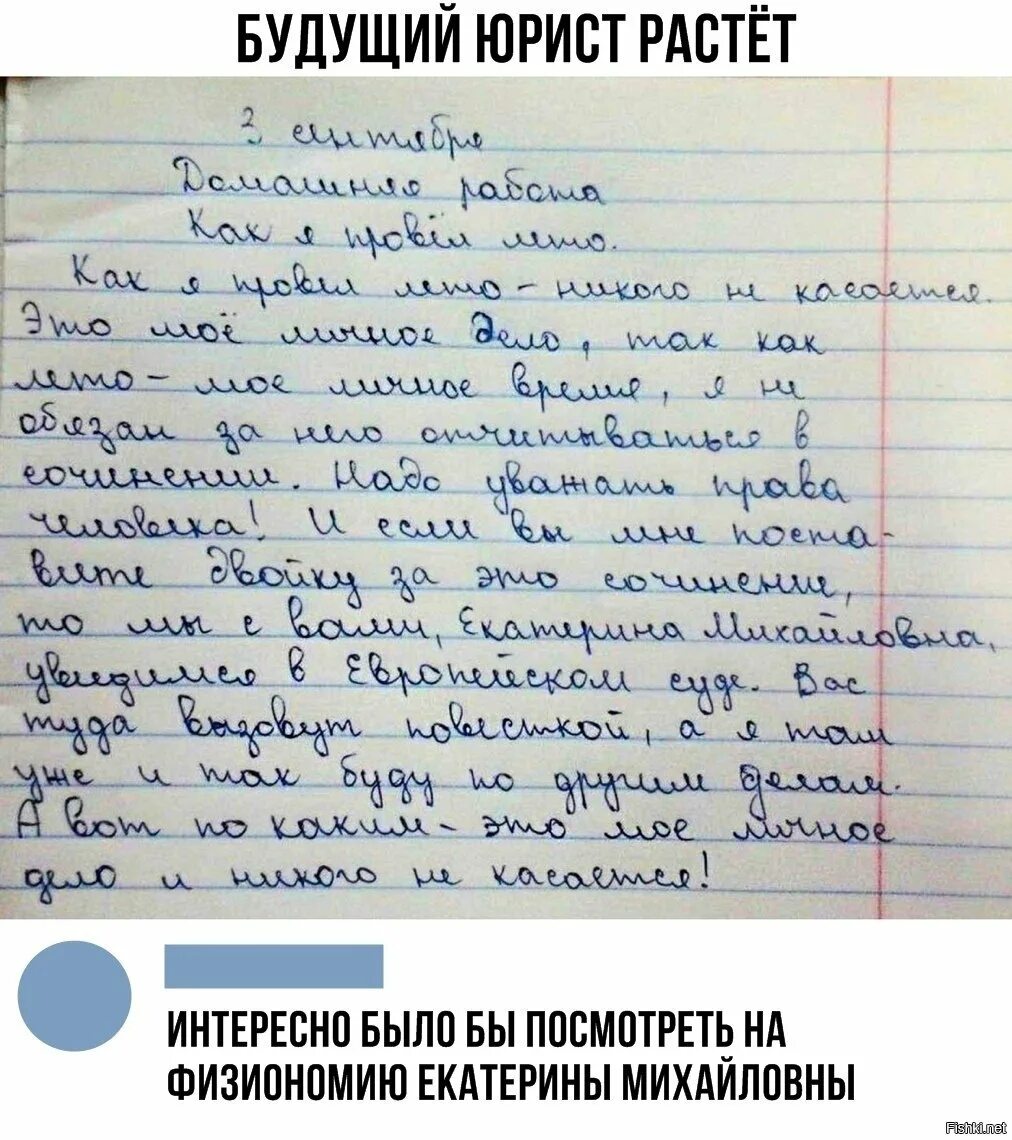 БУДУЩИЙ ЮРИСТ РАСТЁТ
3 сентября
Домашняя работа
Как я провёл лето.
Как я провел лето – никого не касается.
Это моё личное дело, так как
лето – мое личное время, я не
обязан за него отчитываться в
сочинении. Надо уважать права
человека! И если вы мне поста-
вите двойку за это сочинение,
то мы с вами, Екатерина Михайловна,
увидимся в Европейском суде. Вас
туда вызовут повесткой, а я там
уже и так буду по другим делам.
А вот по каким – это мое личное
дело и никого не касается!
ИНТЕРЕСНО БЫЛО БЫ ПОСМОТРЕТЬ НА
ФИЗИОНОМИЮ ЕКАТЕРИНЫ МИХАЙЛОВНЫ
Fishki.net